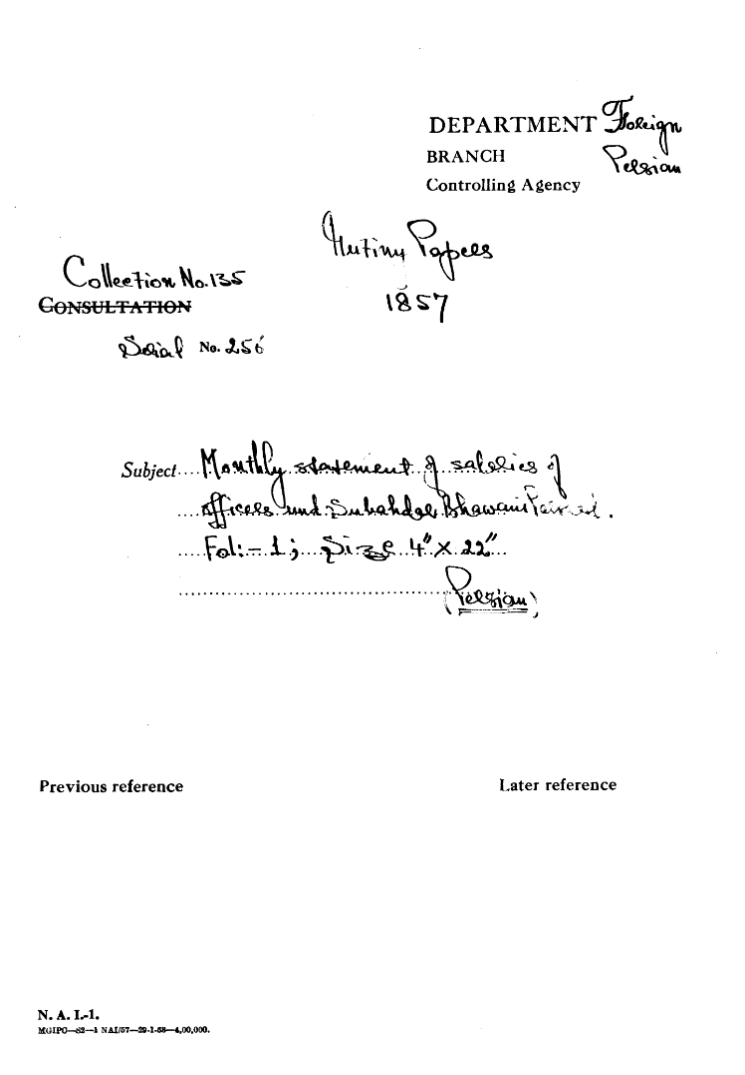 DEPARTMENT Foreign
BRANCH Persian
Controlling Agency
Mutiny Papers
1857
Collection No. 135
CONSULTATION
Serial No. 256
Subject.... Monthly statement of salaries of
.... officers und. Subahdar Bhawani
..... Fol:- 1; Size 4" x 22"
(Persian)
Previous reference
Later reference
N. A. I.-1.
MGIPC—S2—1 NAI/57—29-1-58—4,00,000.